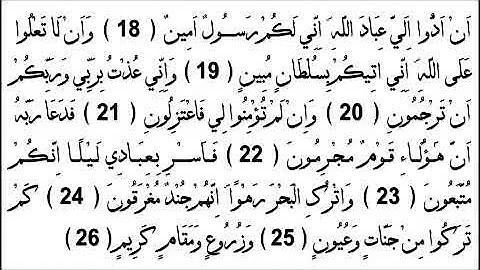 اَنْ اَدُّوا اِلَيَّ عِبَادَ اللّهِ اِنِّي لَكُمْ رَسُولٌ اَمِينٌ ( 18 ) وَاَنْ لَا تَعْلُوا
عَلَى اللّهِ اِنِّي اتِيكُمْ بِسُلْطَانٍ مُبِينٍ ( 19 ) وَاِنِّي عُذْتُ بِرَبِّي وَرَبِّكُمْ
اَنْ تَرْجُمُونِ ( 20 ) وَاِنْ لَمْ تُؤْمِنُوا لِي فَاعْتَزِلُونِ ( 21 ) فَدَعَا رَبَّهُ
اَنَّ هَؤُلَاءِ قَوْمٌ مُجْرِمُونَ ( 22 ) فَاَسْرِ بِعِبَادِي لَيْلًا اِنَّكُمْ
مُتَّبَعُونَ ( 23 ) وَاتْرُكِ الْبَحْرَ رَهْوًا اِنَّهُمْ جُنْدٌ مُغْرَقُونَ ( 24 ) كَمْ
تَرَكُوا مِنْ جَنَّاتٍ وَعُيُونٍ ( 25 ) وَزُرُوعٍ وَمَقَامٍ كَرِيمٍ ( 26 )